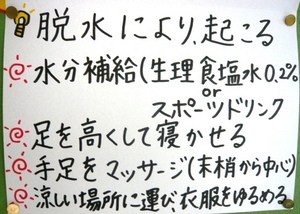 脱水により、起こる
水分補給(生理食塩水0.2%
or
スポーツドリンク
足を高くして寝かせる
手足をマッサージ(末梢から中心)
涼しい場所に運び衣服をゆるめる